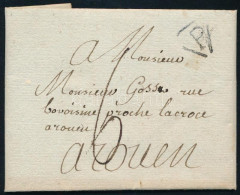 B
a Monsieur
Monsieur Gosse rue
bovoisine proche lacroce
arouen
6
arouen